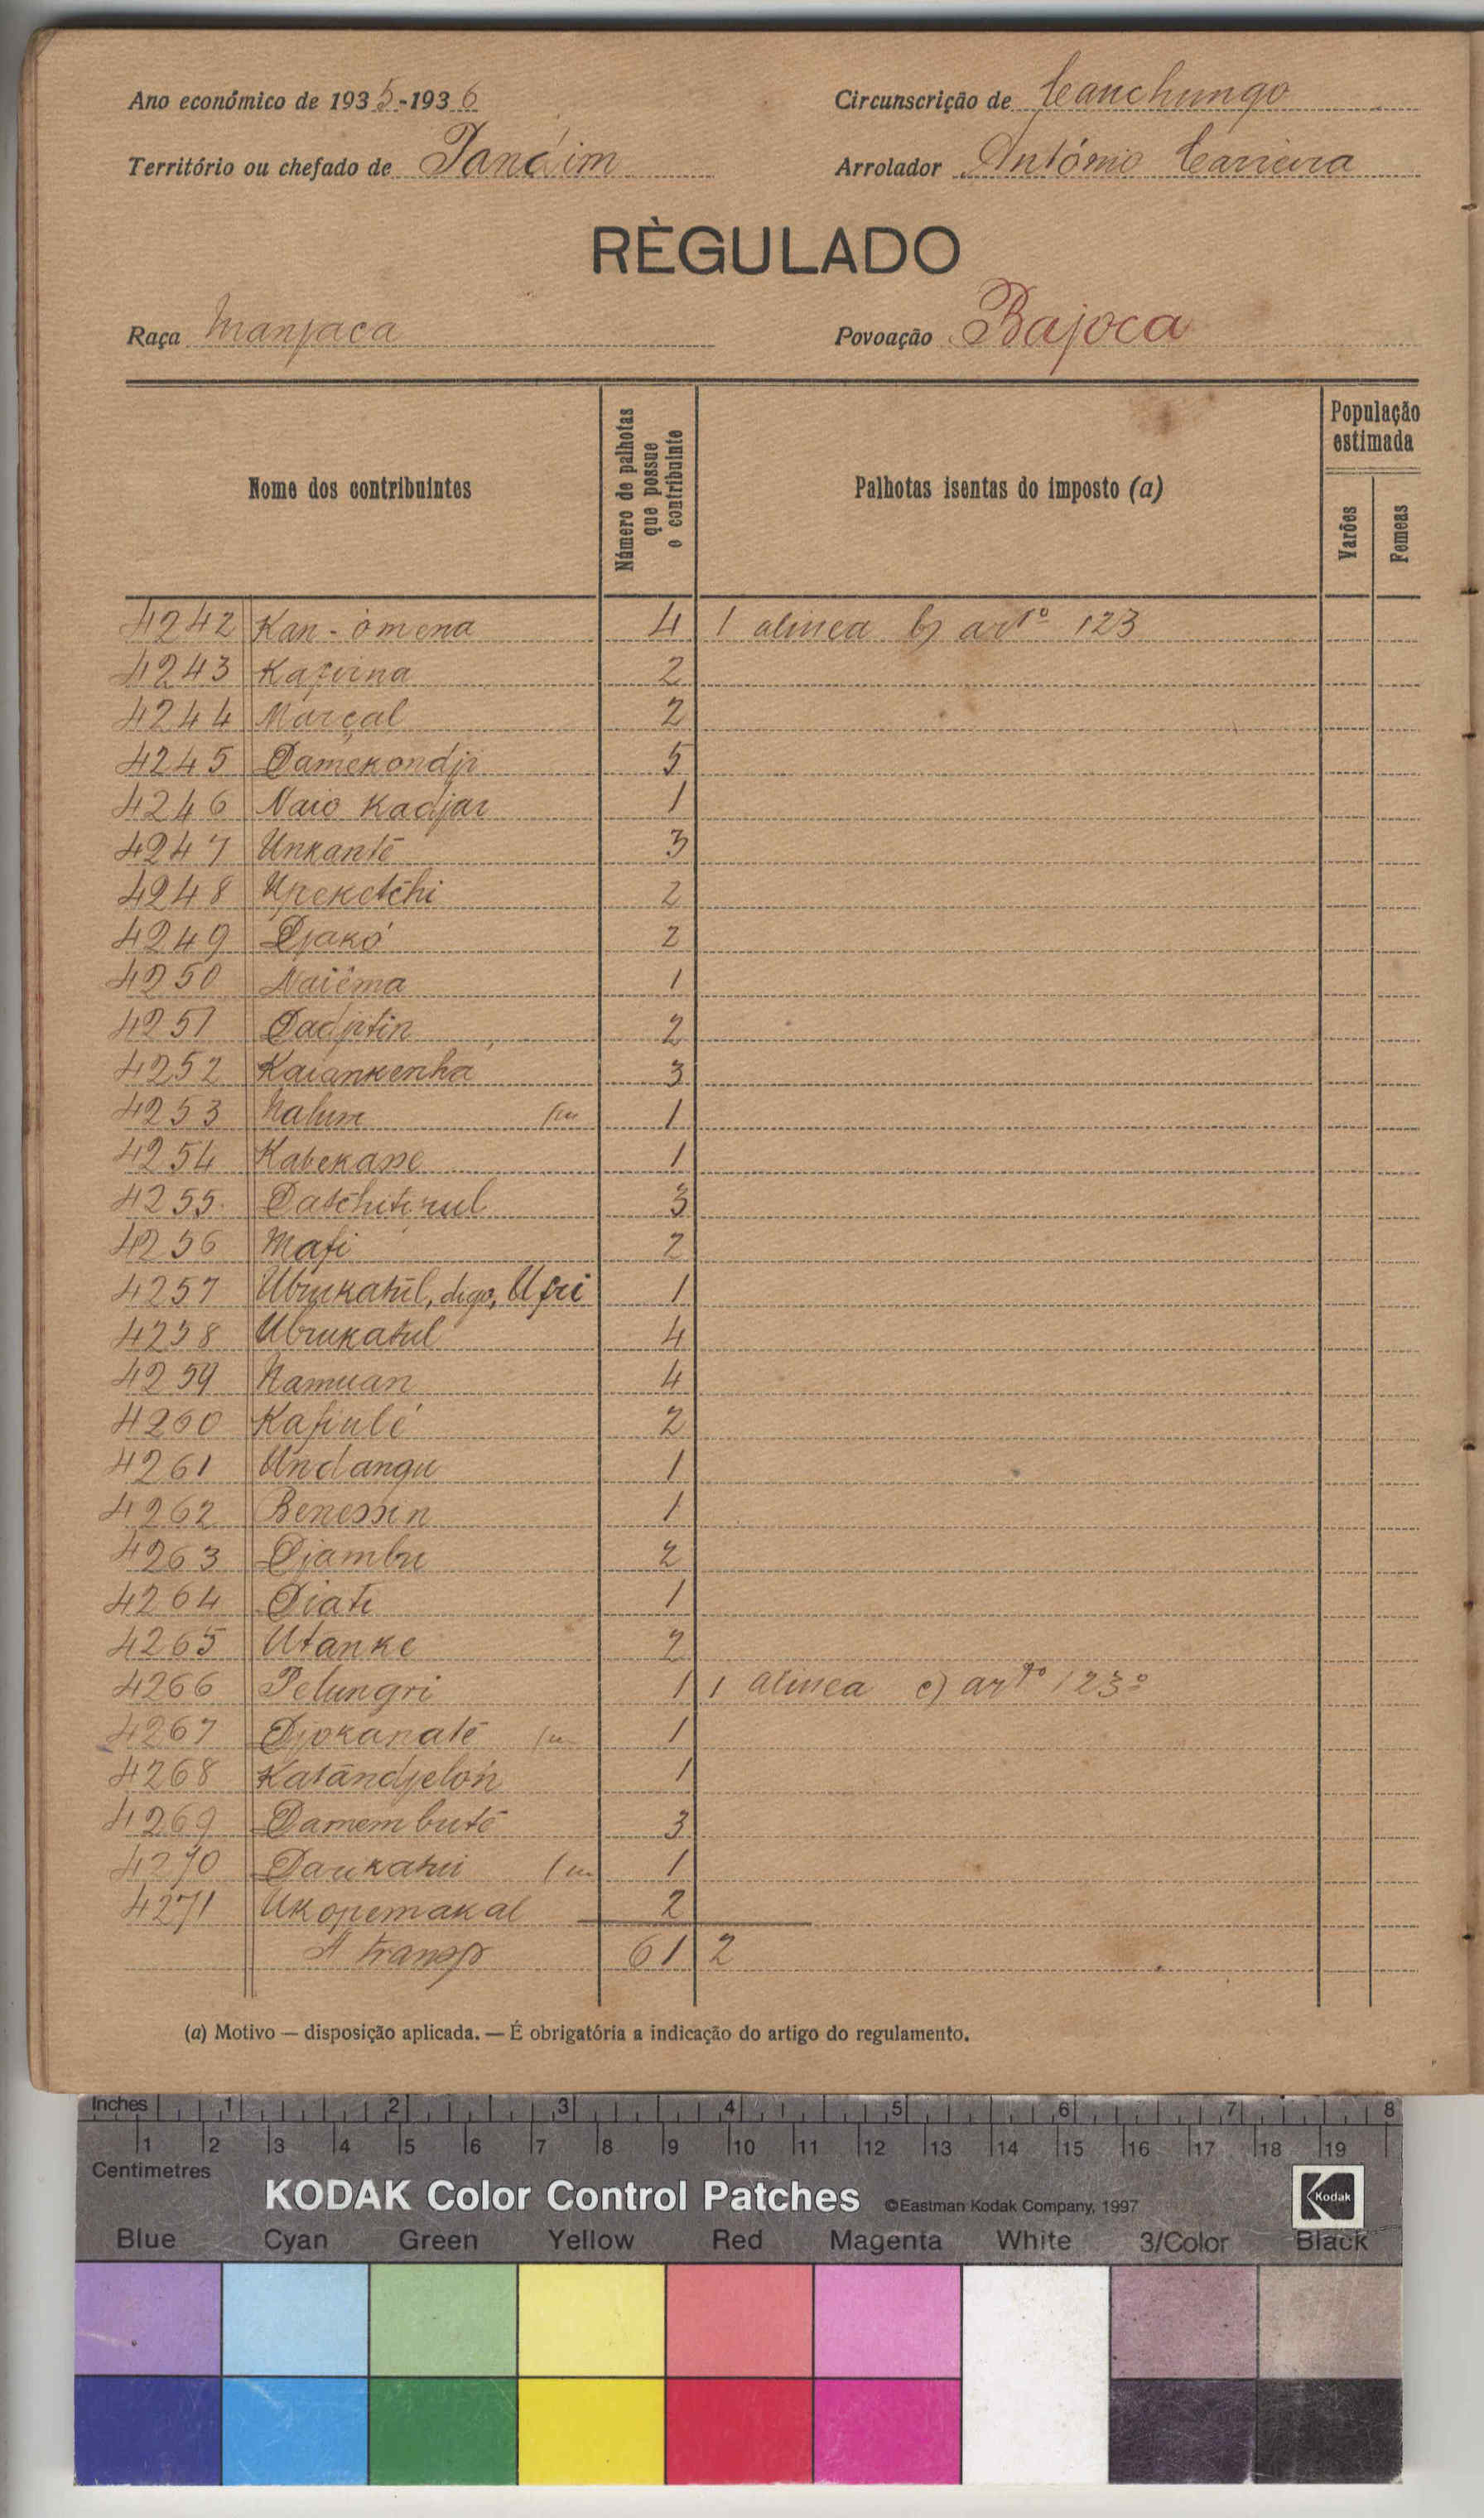 Ano económico de 1935-1936 Circunscrição de Canchungo
Território ou chefado de Pandim Arrolador António Carreira
RÈGULADO
Raça Manjaca Povoação Bajoca
Nome dos contribuintes Número de palhotas que possue o contribuinte Palhotas isentas do imposto (a) População estimada Varões Femeas
4242 Kan-ómena 4 1 alinea b) artº 123
4243 Kafrina 2
4244 Marçal 2
4245 Damekondji 5
4246 Naio Kadjar 1
4247 Unkanté 3
4248 Upeketchi 2
4249 Djakó 2
4250 Naiéma 1
4251 Dadjitin 2
4252 Kaiankenha 3
4253 Nalum 1
4254 Kabekane 1
4255 Datchitirul 3
4256 Mafi 2
4257 Ubrukatul, digo, Ufri 1
4258 Ubrukatul 4
4259 Namuan 4
4260 Kafiulé 2
4261 Undangu 1
4262 Benessin 1
4263 Djambu 2
4264 Diati 1
4265 Utanke 2
4266 Pelungri 1 1 alinea c) artº 123º
4267 Djokanaté 1
4268 Katandjelon 1
4269 Damembuté 3
4270 Daukatui 1
4271 Ukopemakal 2
A transp 61 2
(a) Motivo — disposição aplicada. — É obrigatória a indicação do artigo do regulamento.
Inches 1 2 3 4 5 6 7 8
1 2 3 4 5 6 7 8 9 10 11 12 13 14 15 16 17 18 19
Centimetres
KODAK Color Control Patches ©Eastman Kodak Company, 1997 Kodak
Blue Cyan Green Yellow Red Magenta White 3/Color Black